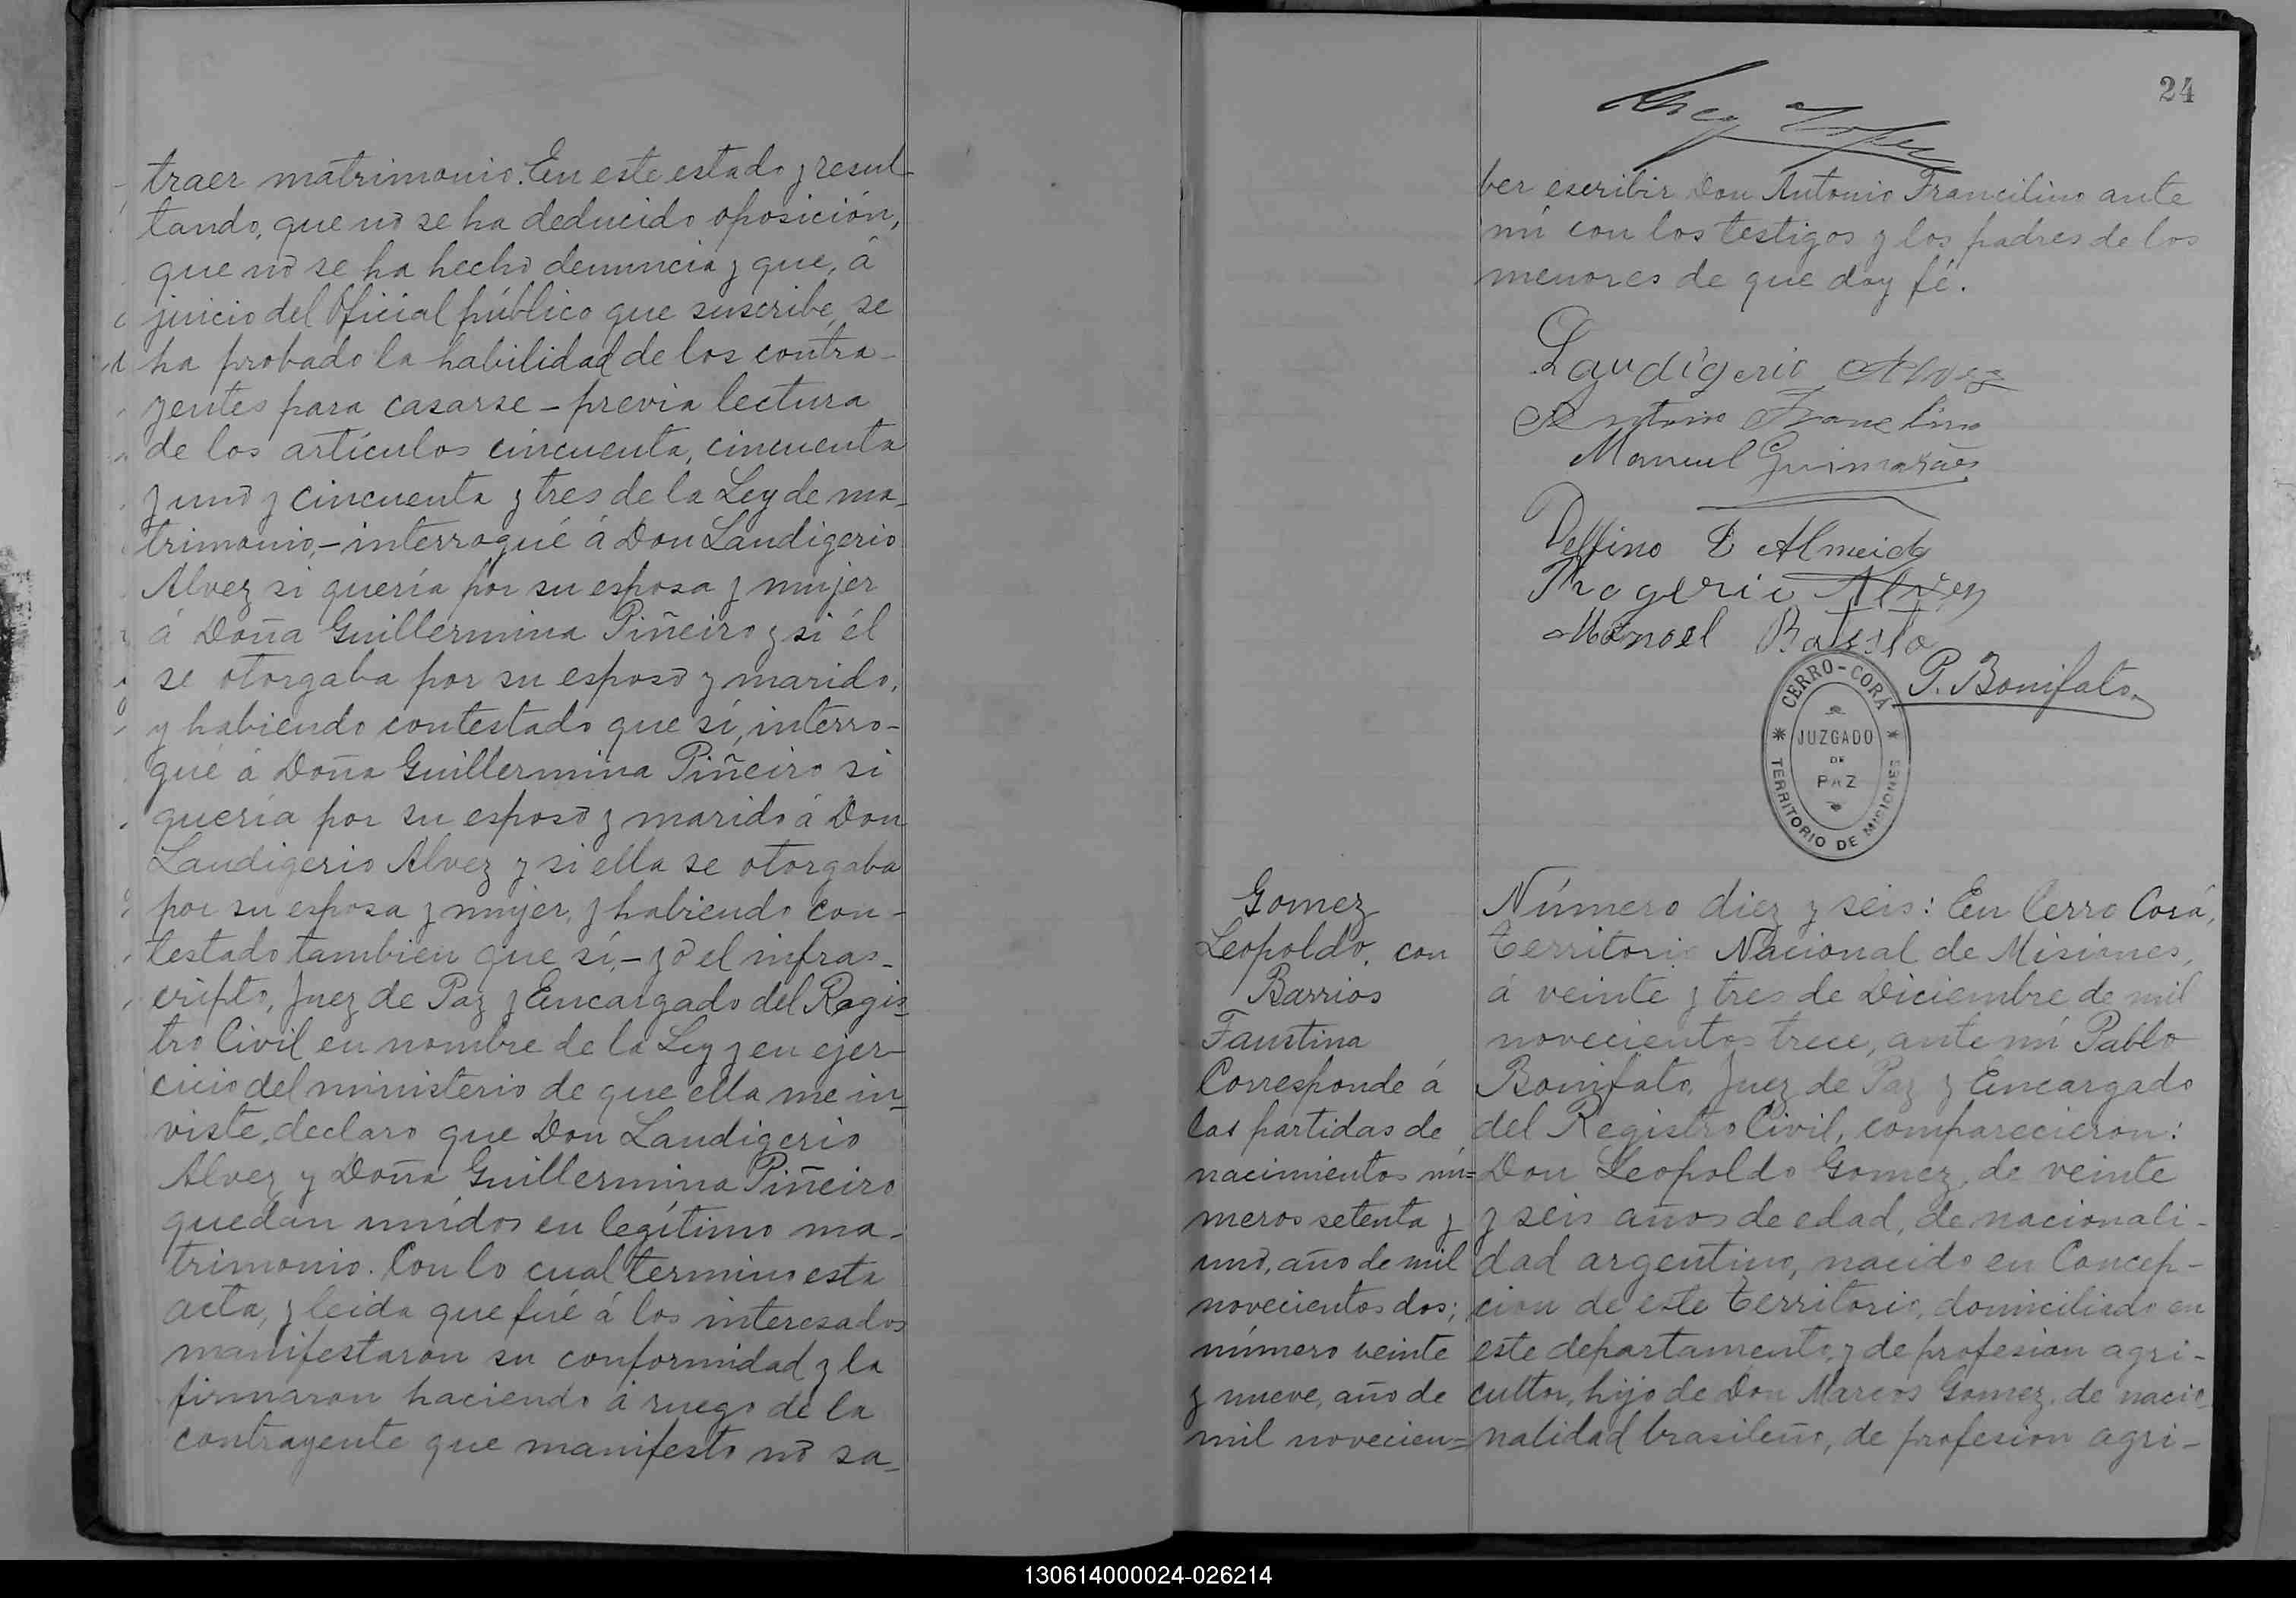 traer matrimonio. En este estado y resul-
tando, que no se ha deducido oposición,
que no se ha hecho denuncia y que, á
juicio del Oficial público que suscribe, se
ha probado la habilidad de los contra-
yentes para casarse - previa lectura
de los artículos cincuenta, cincuenta
y uno y cincuenta y tres de la Ley de ma-
trimonio, - interrogué á Don Laudigerio
Alvez si quería por su esposa y mujer
á Doña Guillermina Piñeiro y si él
se otorgaba por su esposo y marido,
y habiendo contestado que sí, interro-
gué á Doña Guillermina Piñeiro si
quería por su esposo y marido á Don
Laudigerio Alvez y si ella se otorgaba
por su esposa y mujer, y habiendo con-
testado tambien que sí, - yo el infras-
cripto, Juez de Paz y Encargado del Regis-
tro Civil en nombre de la Ley y en ejer-
cicio del ministerio de que ella me in-
viste, declaro que Don Laudigerio
Alvez y Doña Guillermina Piñeiro
quedan unidos en legítimo ma-
trimonio. Con lo cual termino esta
acta, y leida que fué á los interesados
manifestaron su conformidad y la
firmaron haciendo á ruego de la
contrayente que manifesto no sa-
24
ber escribir Don Antonio Francilino ante
mí con los testigos y los padres de los
menores de que doy fé.
Laudigerio Alvez
Antonio Francelino
Manuel Guimarães
Delfino D Almeida
Rogerio Alvez
Manoel Batista
P. Bonifato
CERRO-CORÁ
JUZGADO
DE
PAZ
TERRITORIO DE MISIONES
Gomez
Leopoldo, con
Barrios
Faustina
Corresponde á
las partidas de
nacimientos nú-
meros setenta y
uno, año de mil
novecientos dos;
número veinte
y nueve, año de
mil novecien=
Número diez y seis: En Cerro Corá,
Territorio Nacional de Misiones,
á veinte y tres de Diciembre de mil
novecientos trece, ante mí Pablo
Bonifato, Juez de Paz y Encargado
del Registro Civil, comparecieron:
Don Leopoldo Gomez, de veinte
y seis años de edad, de nacionali-
dad argentino, nacido en Concep-
cion de este Territorio, domiciliado en
este departamento, y de profesion agri-
cultor, hijo de Don Marcos Gomez, de nacio
nalidad brasileño, de profesion agri-
130614000024-026214